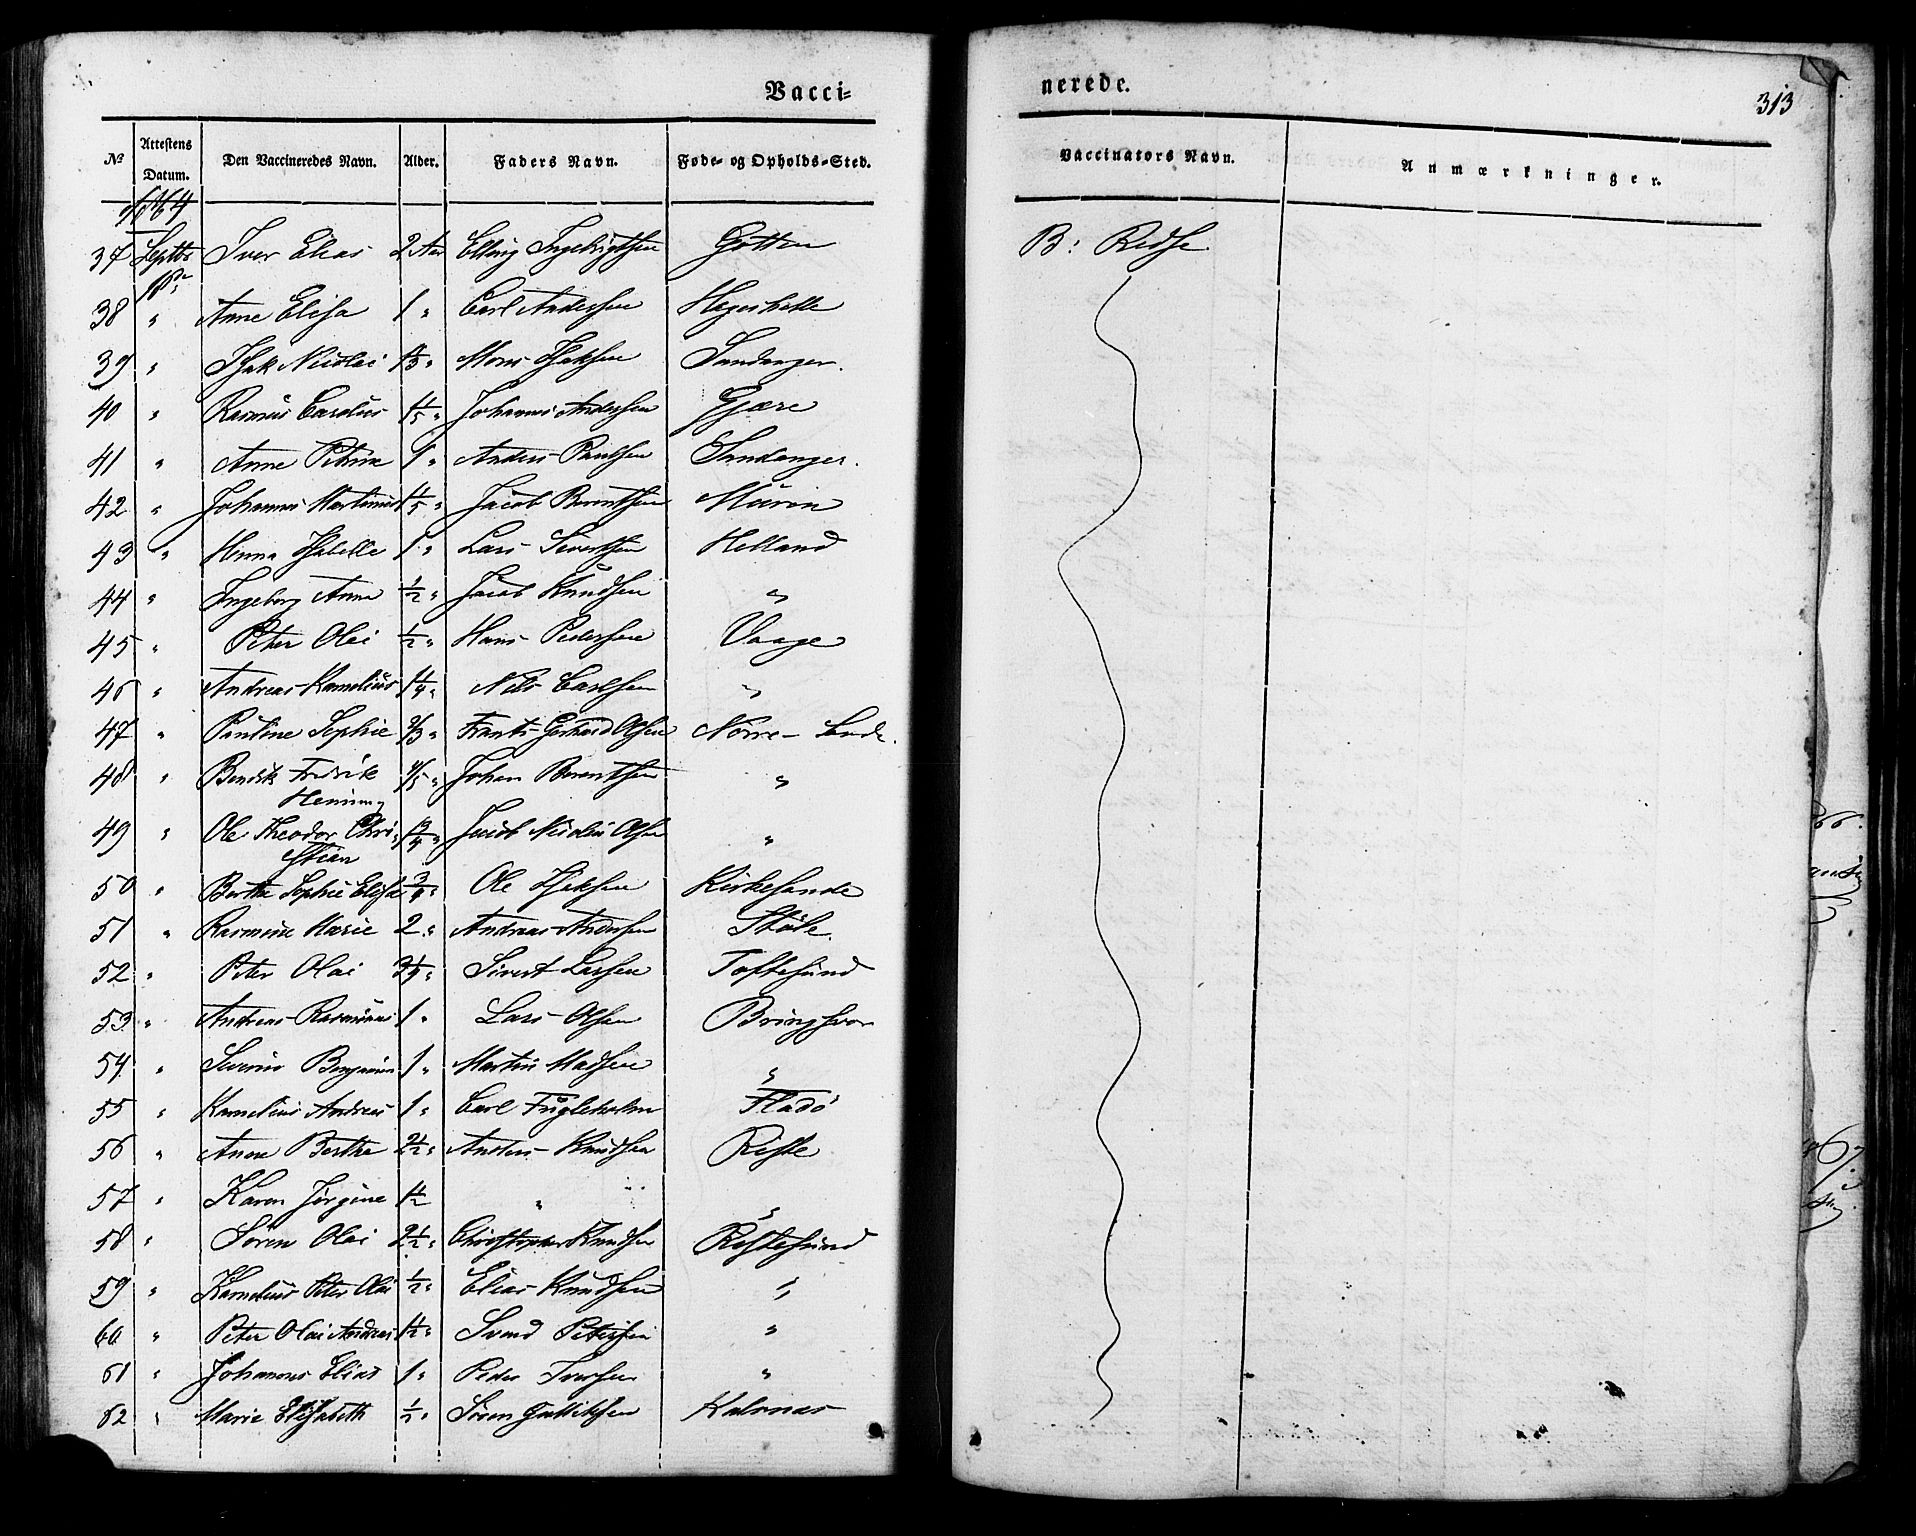 Vacci=
№ Attestens Datum. Den Vaccineredes Navn. Alder. Faders Navn. Føde- og Opholds-Sted.
1864
37 Septbr 18de Iver Elias 2 Aar Elling Ingebrigtsen Gotten
38 " Anne Elisa 1 " Carl Andersen
39 " Isak Nicolai Mons Isaksen Sandanger.
40 " Rasmus Carolus 1 1/5 " Johannes Andersen Gjære
41 " Anne Petrine 1 " Anders Paulsen Sandanger.
42 " Johannes Martinus 1 1/5 " Jacob Berentsen
43 " Isabelle 1 " Lars Sivertsen Helland
44 " Ingeborg Anna 1/2 " Jacob Knudsen "
45 " Peter Olai 1/2 " Hans Pedersen Vaage
46 " Andreas Kornelius 1 1/4 " Nils Carlsen "
47 " Pauline Sophie 2/3 " Frants Gerhard Olsen Nörre-Sande.
48 " Bendik Fredrik 4/5 " Johan Berentsen "
Henning
49 " Ole Theodor Chri- Jacob Nicolai Olsen "
stian
50 " Berthe Sophie Elisa 3/4 " Ole Isaksen Kirkesande
51 " Rasmine Marie 2 " Andreas Andersen
52 " Peter Olai 3 1/4 " Sivert Larsen Toftesund
53 " Andreas Rasmus 1 " Lars Olsen Bringsvor
54 " Severin Benjamin 1 " Martin Madsen "
55 " Kornelius Andreas 1 " Carl Fugleholm Fladö
56 " Anne Berthe 2 1/2 " Anders Knudsen Riste
57 " Karen Jörgine 1 1/2 " " "
58 " Sören Olai 2 1/2 " Christopher Knudsen Ristesund
59 " Kornelius Peter Olai 1/2 " Elias Knudsen "
60 " Peter Olai Andreas 1 1/2 " Svend Petersen "
61 " Johannes Elias 1 " Peder Iversen "
62 " Marie Elisabeth 1/2 " Sören Gulliksen Kalvnæs
nerede.
313
Vaccinators Navn. Anmærkninger.
B: Redse